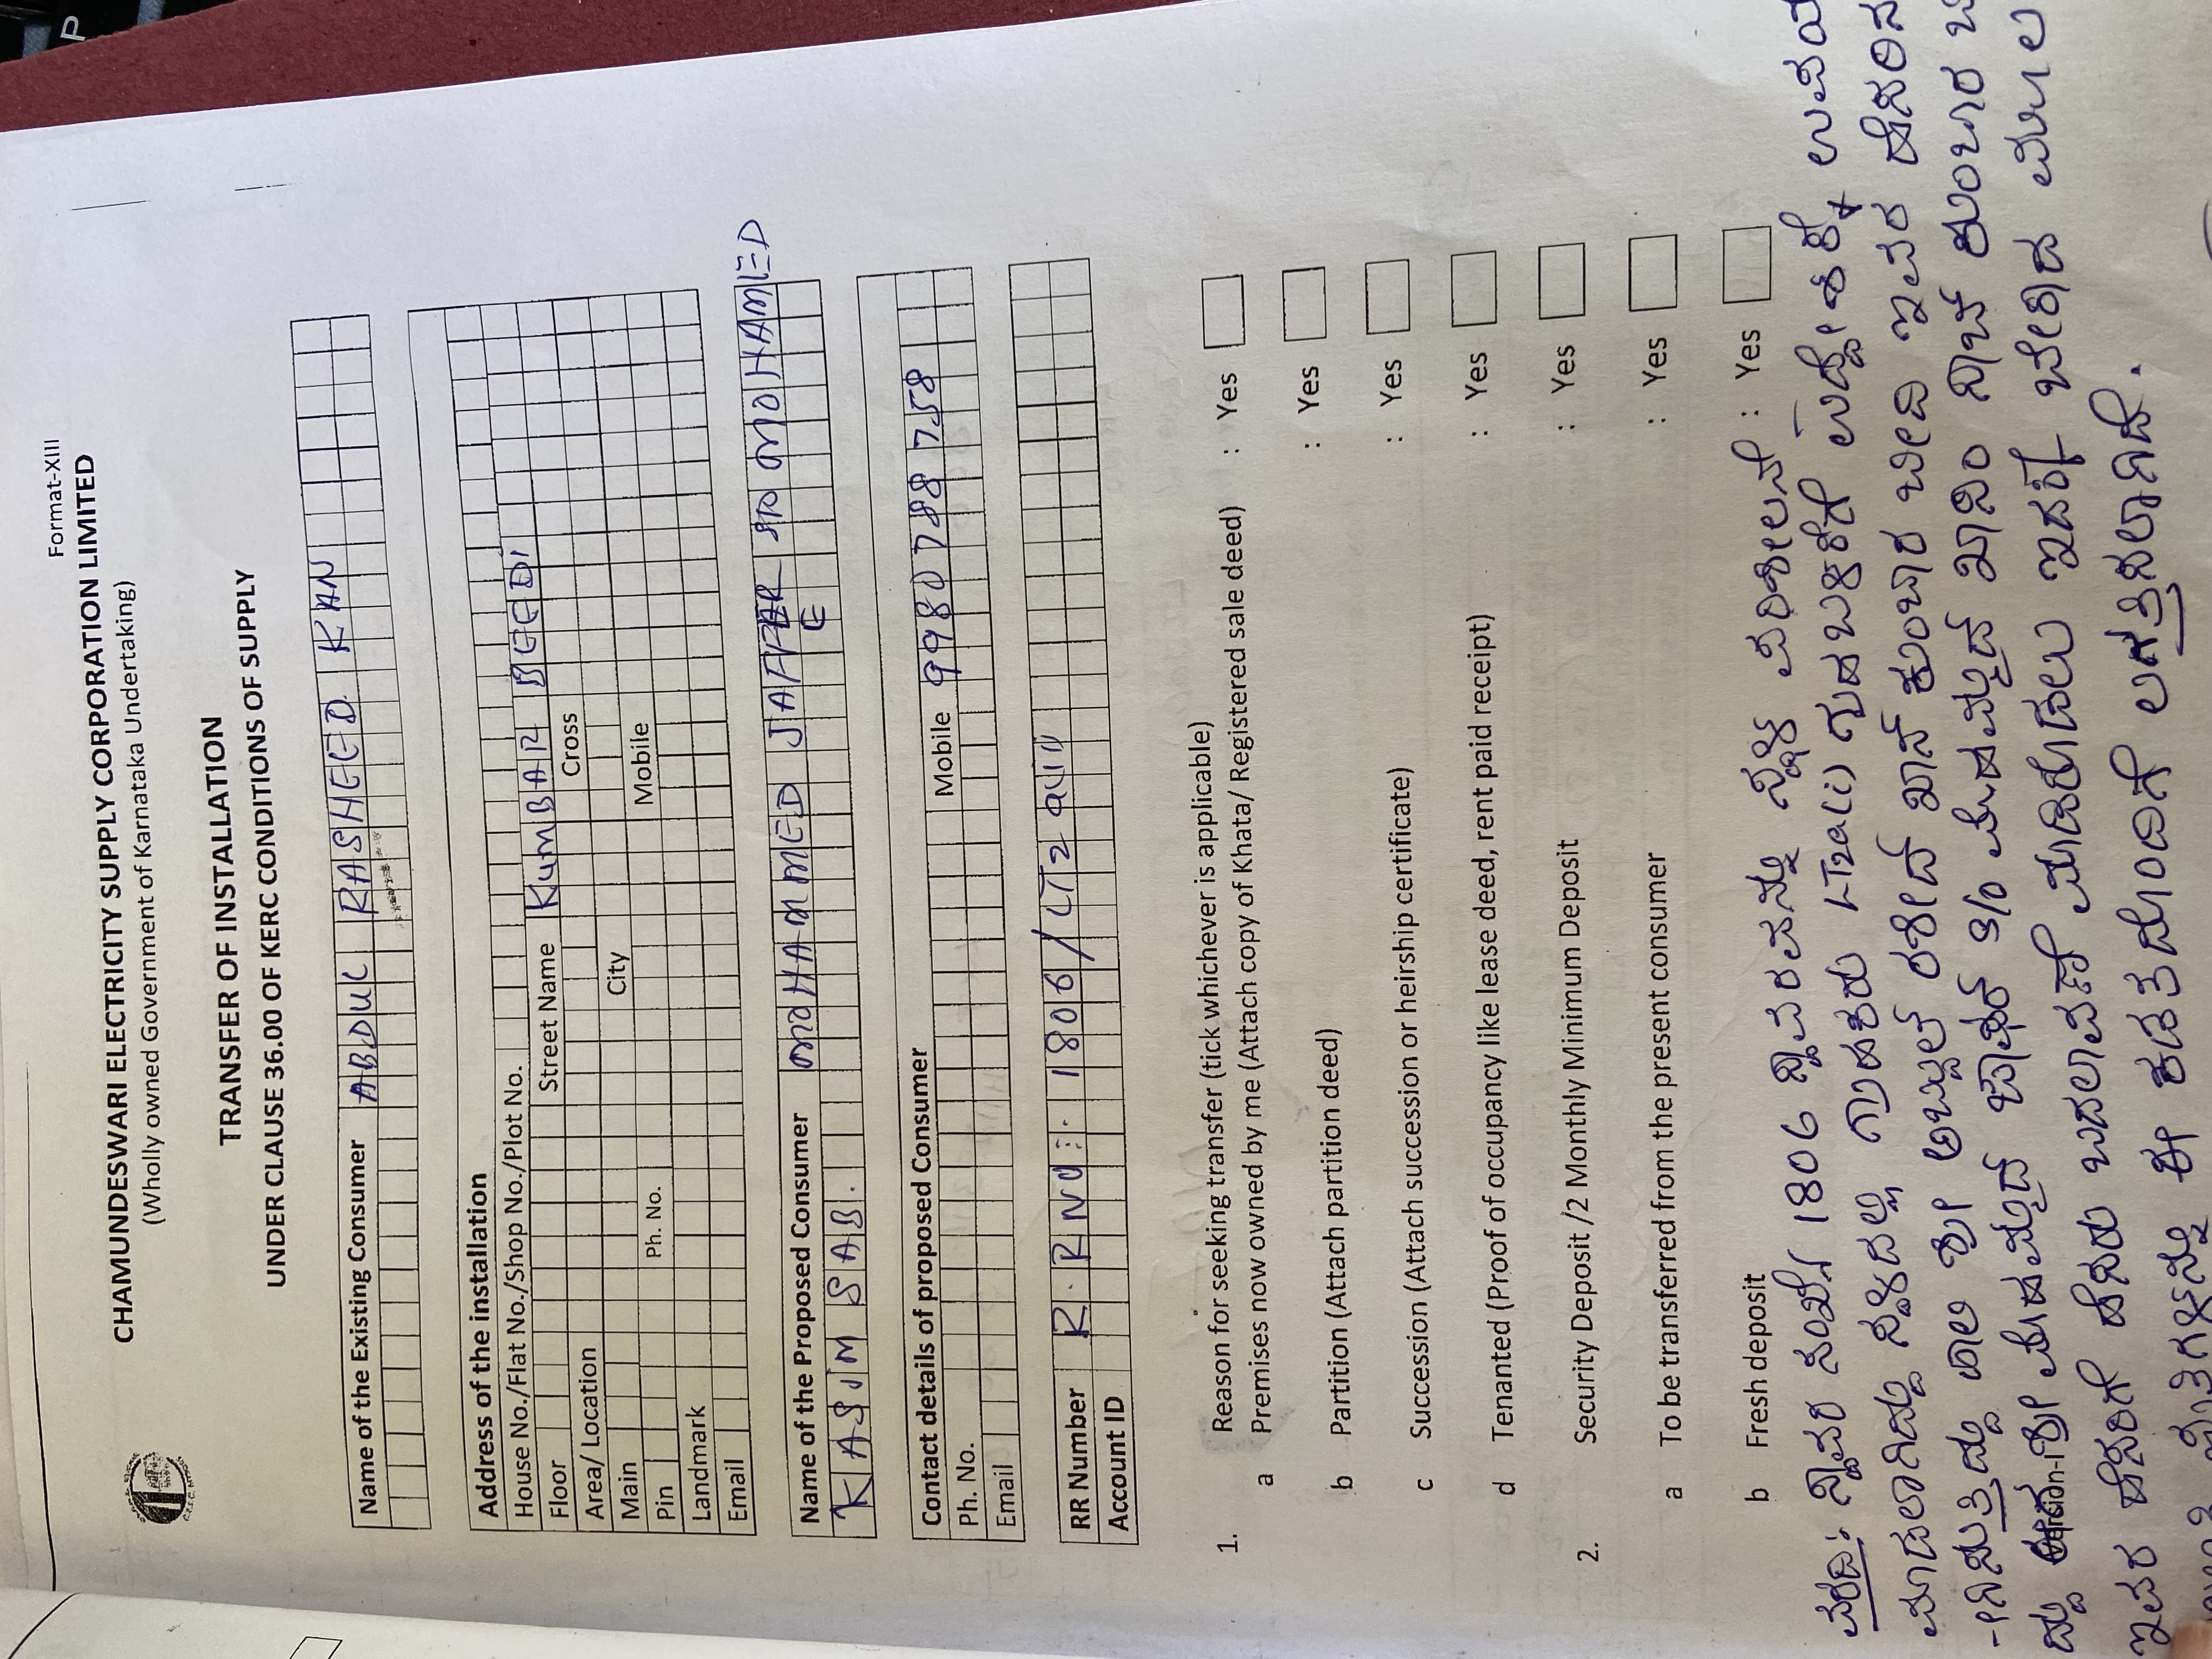 P
Format-XIII
CHAMUNDESWARI ELECTRICITY SUPPLY CORPORATION LIMITED
(Wholly owned Government of Karnataka Undertaking)
TRANSFER OF INSTALLATION
UNDER CLAUSE 36.00 OF KERC CONDITIONS OF SUPPLY
Name of the Existing Consumer ABDUL RASHEED KAN
Address of the installation
House No./Flat No./Shop No./Plot No.
Floor Street Name KUMBAR BEEDI
Area/ Location Cross
Main City
Pin Ph. No. Mobile
Landmark
Email
Name of the Proposed Consumer MOHAMMED JAFFER S/O MOHAMMED
KASIM SAB.
Contact details of proposed Consumer
Ph. No. Mobile 9980788758
Email
RR Number R.R NO: 1806/LT2
Account ID
1. Reason for seeking transfer (tick whichever is applicable)
a Premises now owned by me (Attach copy of Khata/ Registered sale deed) : Yes
b Partition (Attach partition deed) : Yes
c Succession (Attach succession or heirship certificate) : Yes
d Tenanted (Proof of occupancy like lease deed, rent paid receipt) : Yes
2. Security Deposit /2 Monthly Minimum Deposit : Yes
a To be transferred from the present consumer : Yes
b Fresh deposit : Yes
ವರದಿ: ಸ್ಥಾವರ ಸಂಖ್ಯೆ 1806 ಸ್ಥಾವರವನ್ನು ಸ್ಥಳ ಪರಿಶೀಲನೆ
ಮಾಡಲಾಗಿದ್ದು ಸ್ಥಳದಲ್ಲಿ ಗ್ರಾಹಕರು LT2a(i) ಗೃಹಬಳಕೆಗೆ ಉದ್ದೇಶಕ್ಕೆ
ಹಾಲಿ ಶ್ರೀ ಅಬ್ದುಲ್ ರಶೀದ್ ಖಾನ್ ಕುಂಬಾರ ಬೀದಿ ಇವರ
ಶ್ರೀ ಮಹಮ್ಮದ್ ಜಾಫರ್ S/O ಮಹಮ್ಮದ್ ಖಾಸಿಂ ಸಾಬ್ ಕುಂಬಾರ
ಇವರ ಹೆಸರಿಗೆ ಹೆಸರು ಬದಲಾವಣೆ ಮಾಡಿಕೊಡಲು
ಈ ಕಡತದೊಂದಿಗೆ ಲಗತ್ತಿಸಲಾಗಿದೆ.